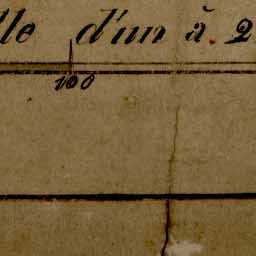 lle d'un à 2
100